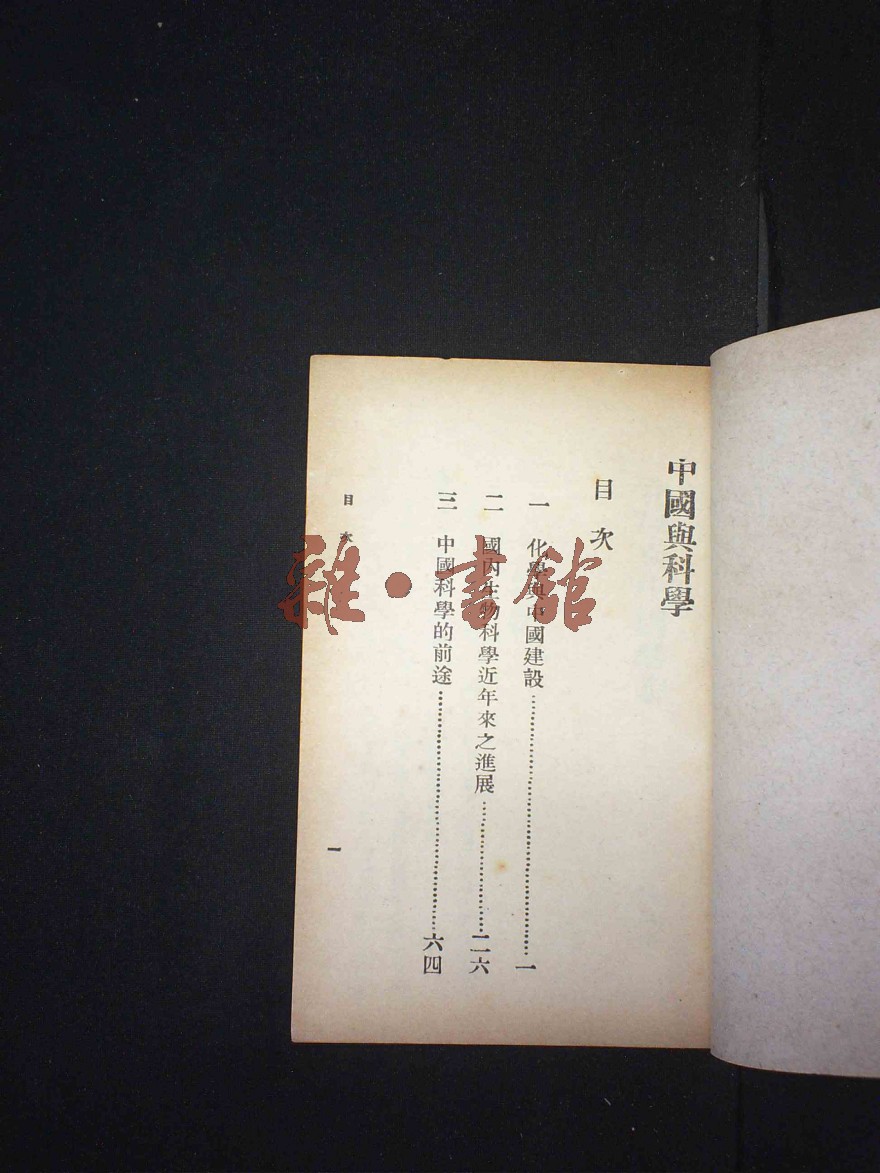 中國與科學
目次
一 化學與中國建設……一
二 國內生物科學近年來之進展……二六
三 中國科學的前途……六四
目次
一
雜·書館